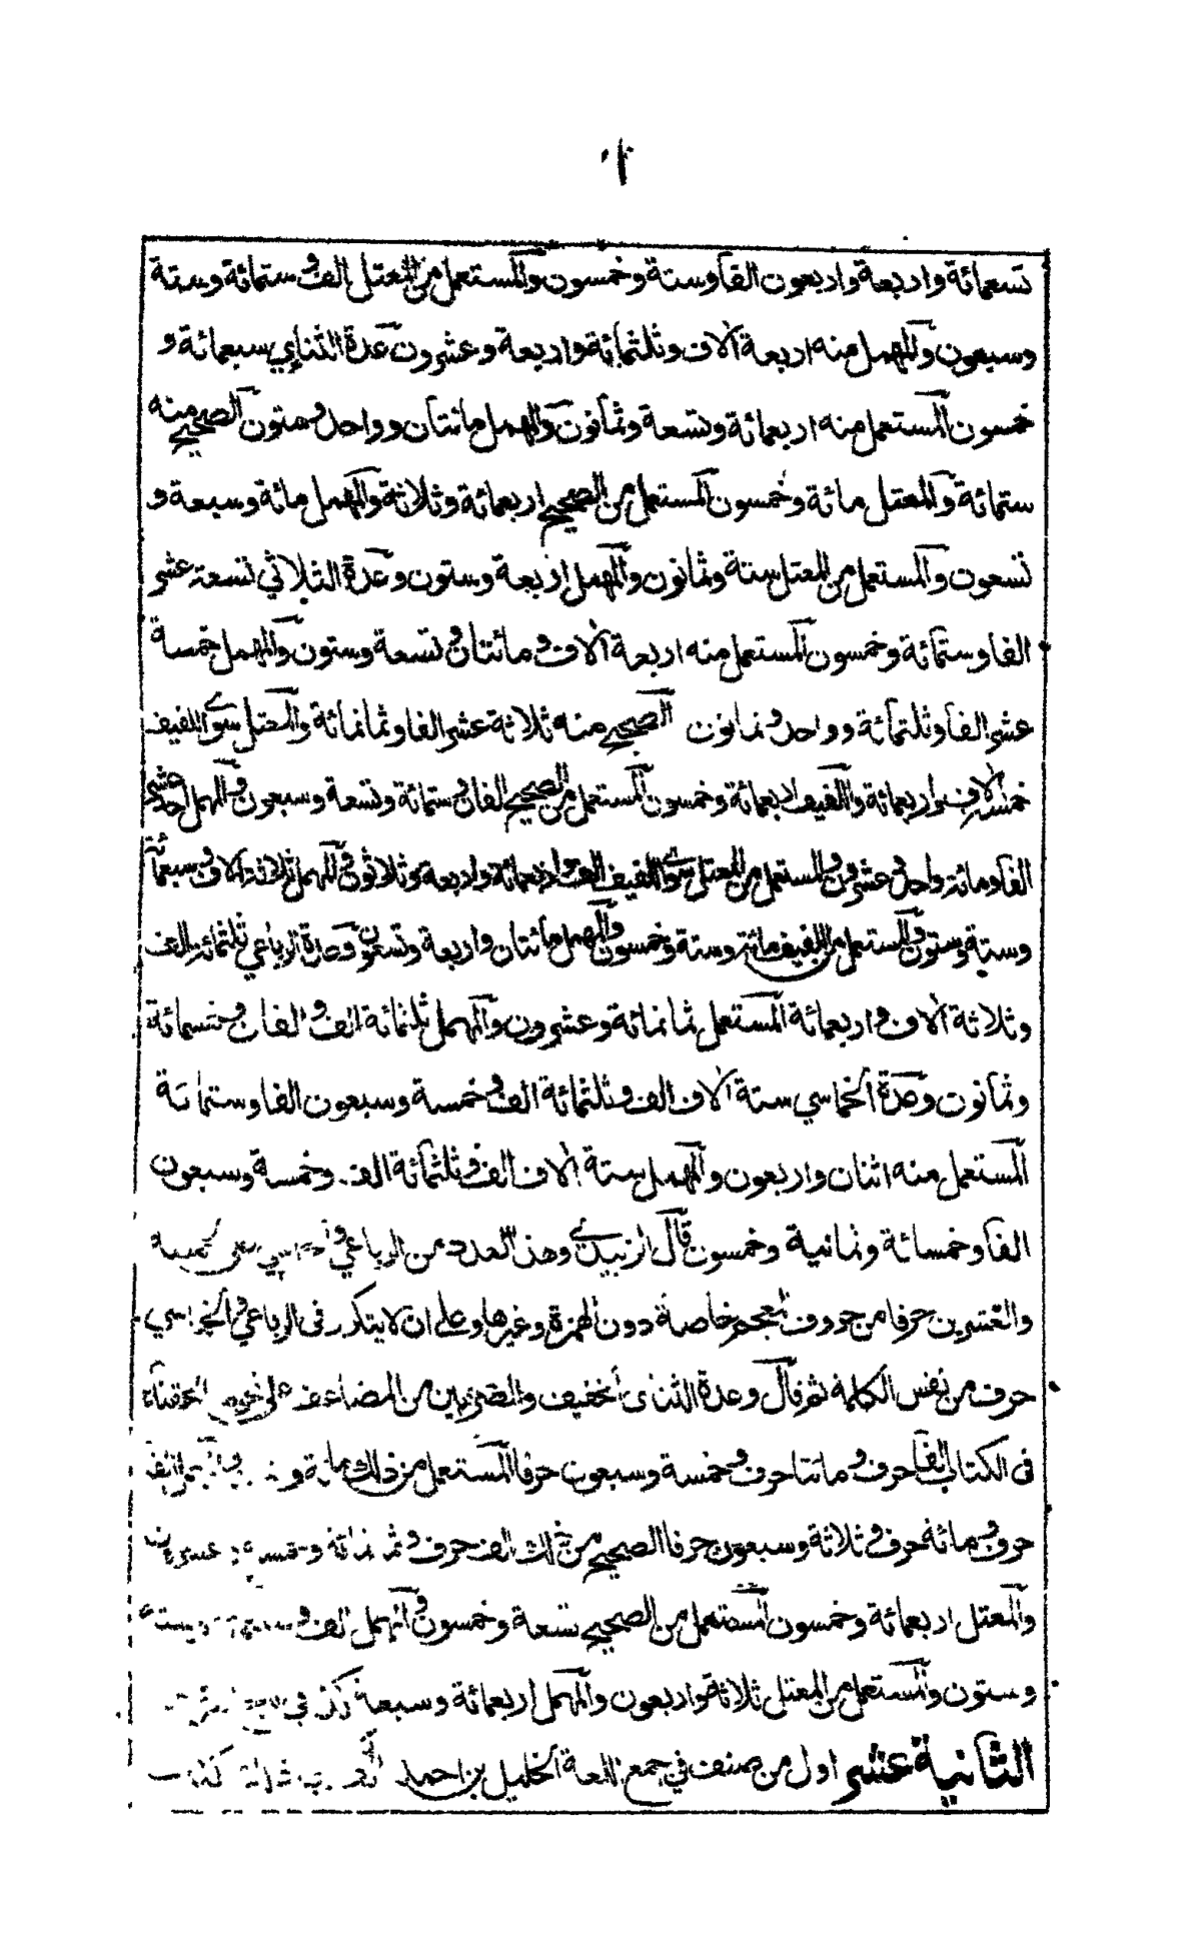 تسعمائة واربعة واربعون الفا وستة وخمسون والمستعمل من المعتل الف و ستمائة وستة
وسبعون والمهمل منه اربعة آلاف وثلثمائة واربعة وعشرون عدة الثنايي سبعمائة و
خمسون المستعمل منه اربعمائة وتسعة وثمانون والمهمل مائتان وواحد وستون الصحيح منه
ستمائة والمعتل مائة وخمسون المستعمل من الصحيح اربعمائة وثلاثة والمهمل مائة وسبعة و
تسعون والمستعمل من المعتل ستة وثمانون والمهمل اربعة وستون وعدة الثلاثي تسعة عشر
الفا وستمائة وخمسون المستعمل منه اربعة آلاف ومائتان وتسعة وستون والمهمل خمسة
عشر الفا وثلثمائة وواحد وثمانون الصحيح منه ثلاثة عشر الفا وثمانمائة والمعتل سوى اللفيف
خمسة آلاف واربعمائة واللفيف اربعمائة وخمسون المستعمل من الصحيح الفان وستمائة وتسعة وسبعون والمهمل احد عشر
الفا ومائة واحد وعشرون والمستعمل من المعتل سوى اللفيف الف واربعمائة واربعة وثلاثون والمهمل ثلاثة آلاف وسبعمائة
وستة وستون والمستعمل من اللفيف مائة وستة وخمسون والمهمل مائتان واربعة وتسعون وعدة الرباعي ثلثمائة الف
وثلاثة آلاف واربعمائة المستعمل ثمانمائة وعشرون والمهمل ثلثمائة الف والفان وخمسمائة
وثمانون وعدة الخماسي ستة آلاف الف وثلثمائة الف وخمسة وسبعون الفا وستمائة
المستعمل منه اثنان واربعون والمهمل ستة آلاف الف وثلثمائة الف وخمسة وسبعون
الفا وخمسائة وثمانية وخمسون قال الزبيدي وهذا العدد من الرباعي والخماسي على الخمسة
والعشرين حرفا من حروف المعجم خاصة دون الهمزة وغيرها وعلى ان لا يتكرر في الرباعي والخماسي
حرف من نفس الكلمة ثم قال وعدة الثنائى الخفيف والضربين من المضاعف على نحو ما الحقناه
فى الكتاب الفا حرف ومائتا حرف وخمسة وسبعون حرفا المستعمل من ذلك مائة و
حرف ومائة حرف وثلاثة وسبعون حرفا الصحيح من ذلك الف حرف وثمانمائة وخمسة وعشرون
والمعتل اربعمائة وخمسون المستعمل من الصحيح تسعة وخمسون والمهمل الف و وستة
وستون والمستعمل من المعتل ثلاثة واربعون والمهمل اربعمائة وسبعة
الثانية عشر اول من صنف في جمع اللغة الخليل بن احمد